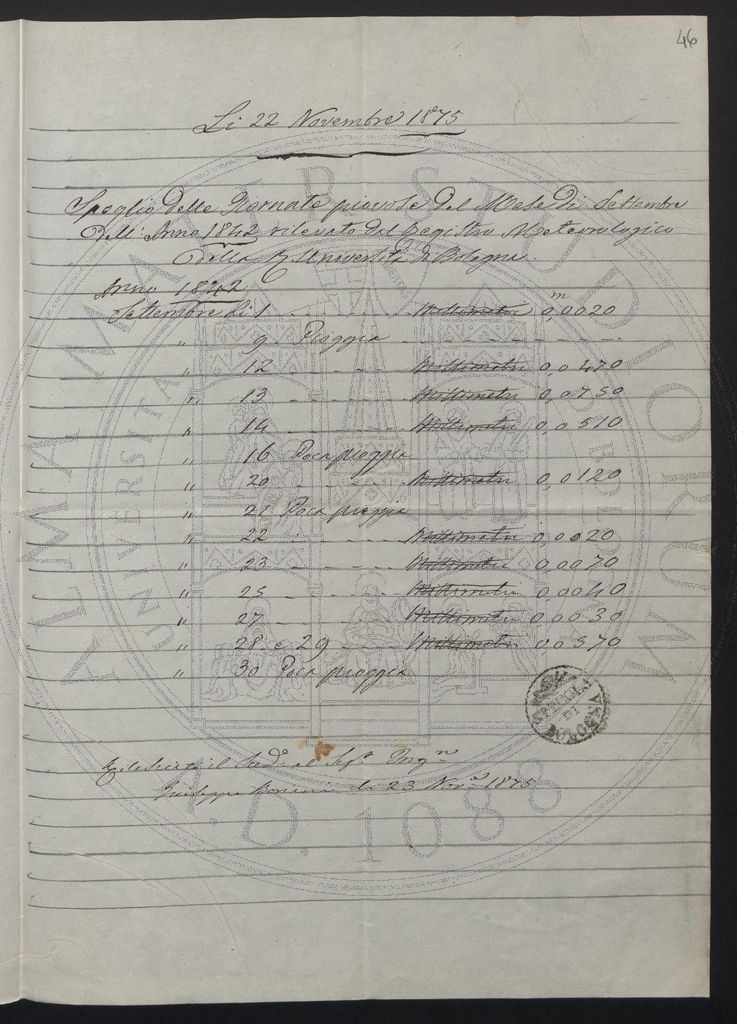 46
Li 22 Novembre 1875
Spoglio delle Giornate piovose del Mese di Settembre
dell' Anno 1842 rilevato dal Registro Meteorologico
della R. Università di Bologna.
Anno 1842
Settembre li 1 - - - Millimetri 0,0020
m
" 9 Pioggia - - - - - -
" 12 - - - Millimetri 0,0470
" 13 - - - Millimetri 0,0750
" 14 - - - Millimetri 0,0510
" 16 Poca pioggia
" 20 - - - Millimetri 0,0120
" 21 Poca pioggia
" 22 - - - Millimetri 0,0020
" 23 - - - Millimetri 0,0070
" 25 - - - Millimetri 0,0040
" 27 - - - Millimetri 0,0030
" 28 e 29 - - - Millimetri 0,0370
" 30 Poca pioggia
Rilasciato il Sud.o al Sig.r Ing.re
Giuseppe li 23 Nov.e 1875
SPECOLA
DI
BOLOGNA
ALMA MATER STUDIORUM
UNIVERSITÀ
A.D. 1088